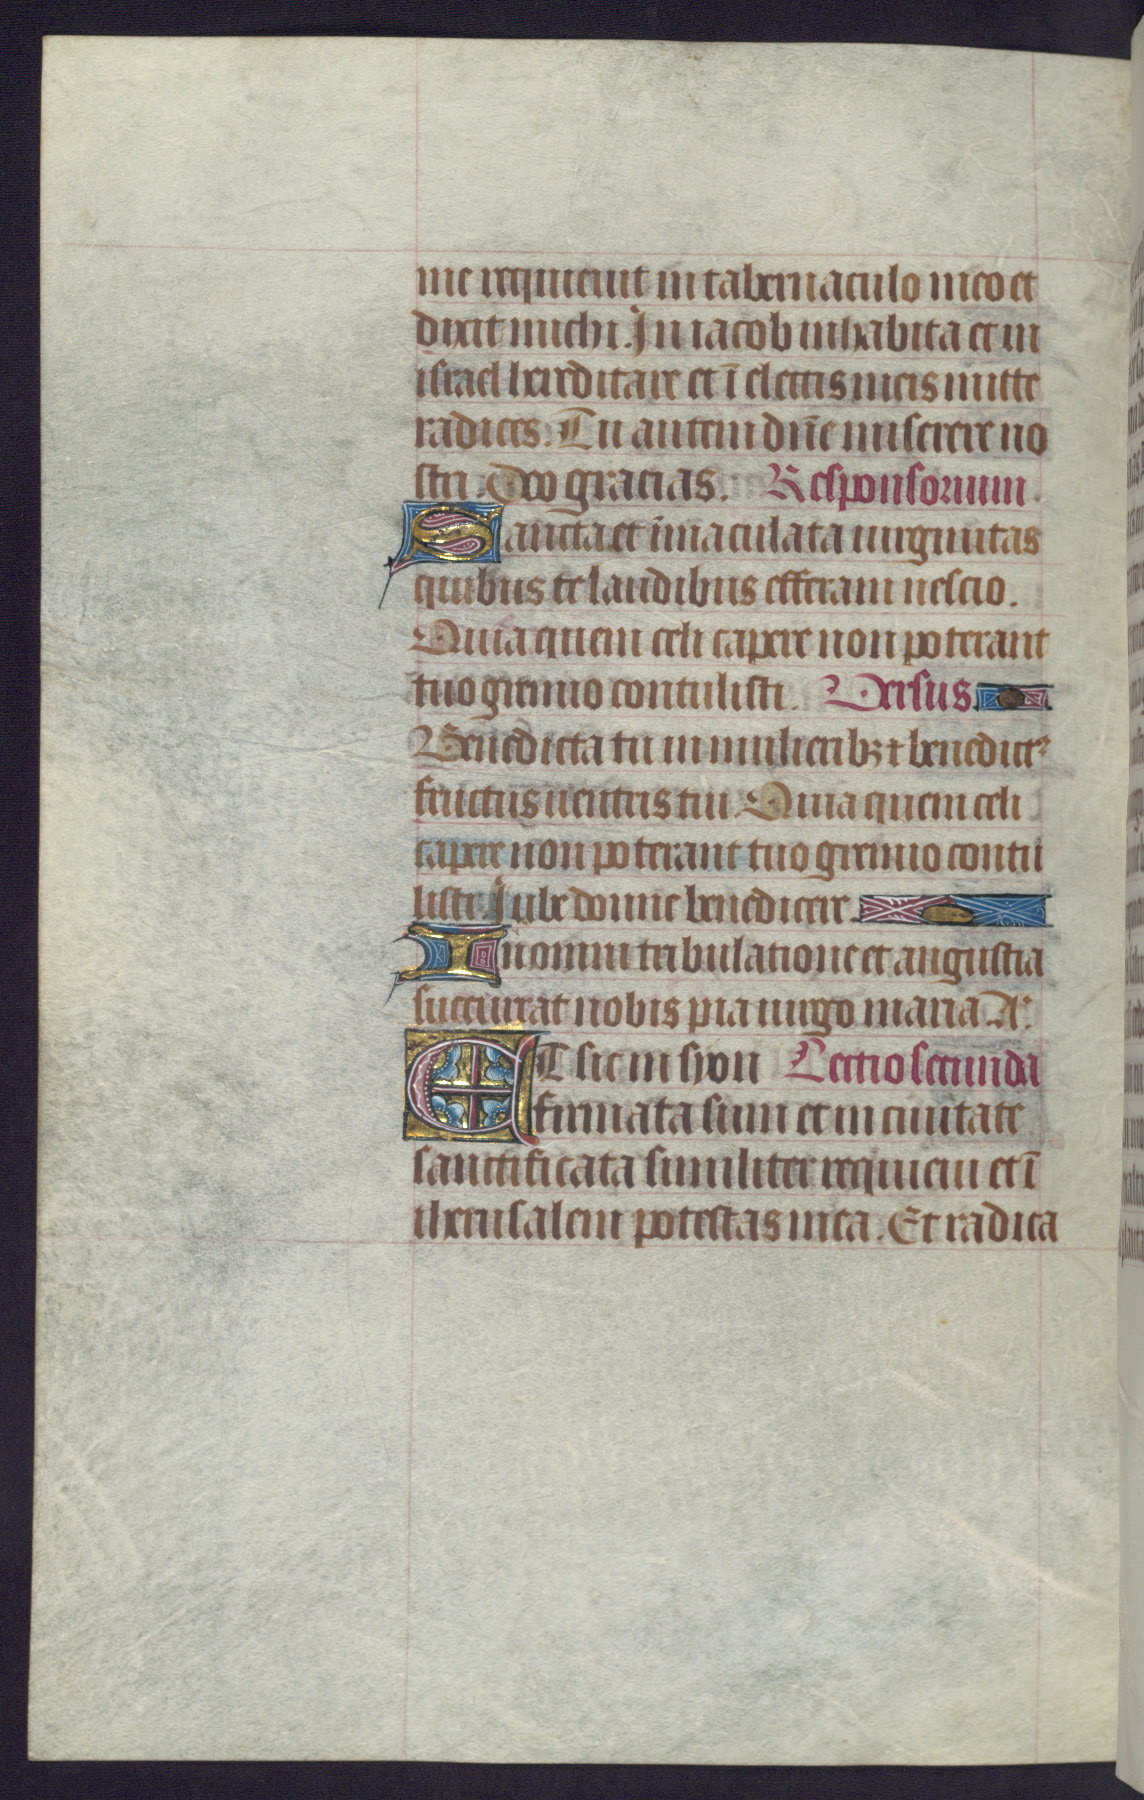 me requieuit in tabernaculo meo et
dixit michi. In iacob inhabita et in
israel hereditare et ī electis meis mitte
radices. Tu autem dn̄e miserere no
stri. Deo gracias. Responsorium.
Sancta et īmaculata uirginitas
quibus te laudibus efferam nescio.
Quia quem celi capere non poterant
tuo gremio contulisti. Versus
Benedicta tu in mulieribꝫ ⁊ benedictꝰ
fructus uentris tui. Quia quem celi
capere non poterant tuo gremio contu
listi. Iube domne benedicere.
In omni tribulatione et angustia
succurrat nobis pia uirgo maria. A.
ET sic in syon Lectio secunda
firmata sum et in ciuitate
sanctificata similiter requieui et ī
iherusalem potestas mea. Et radica